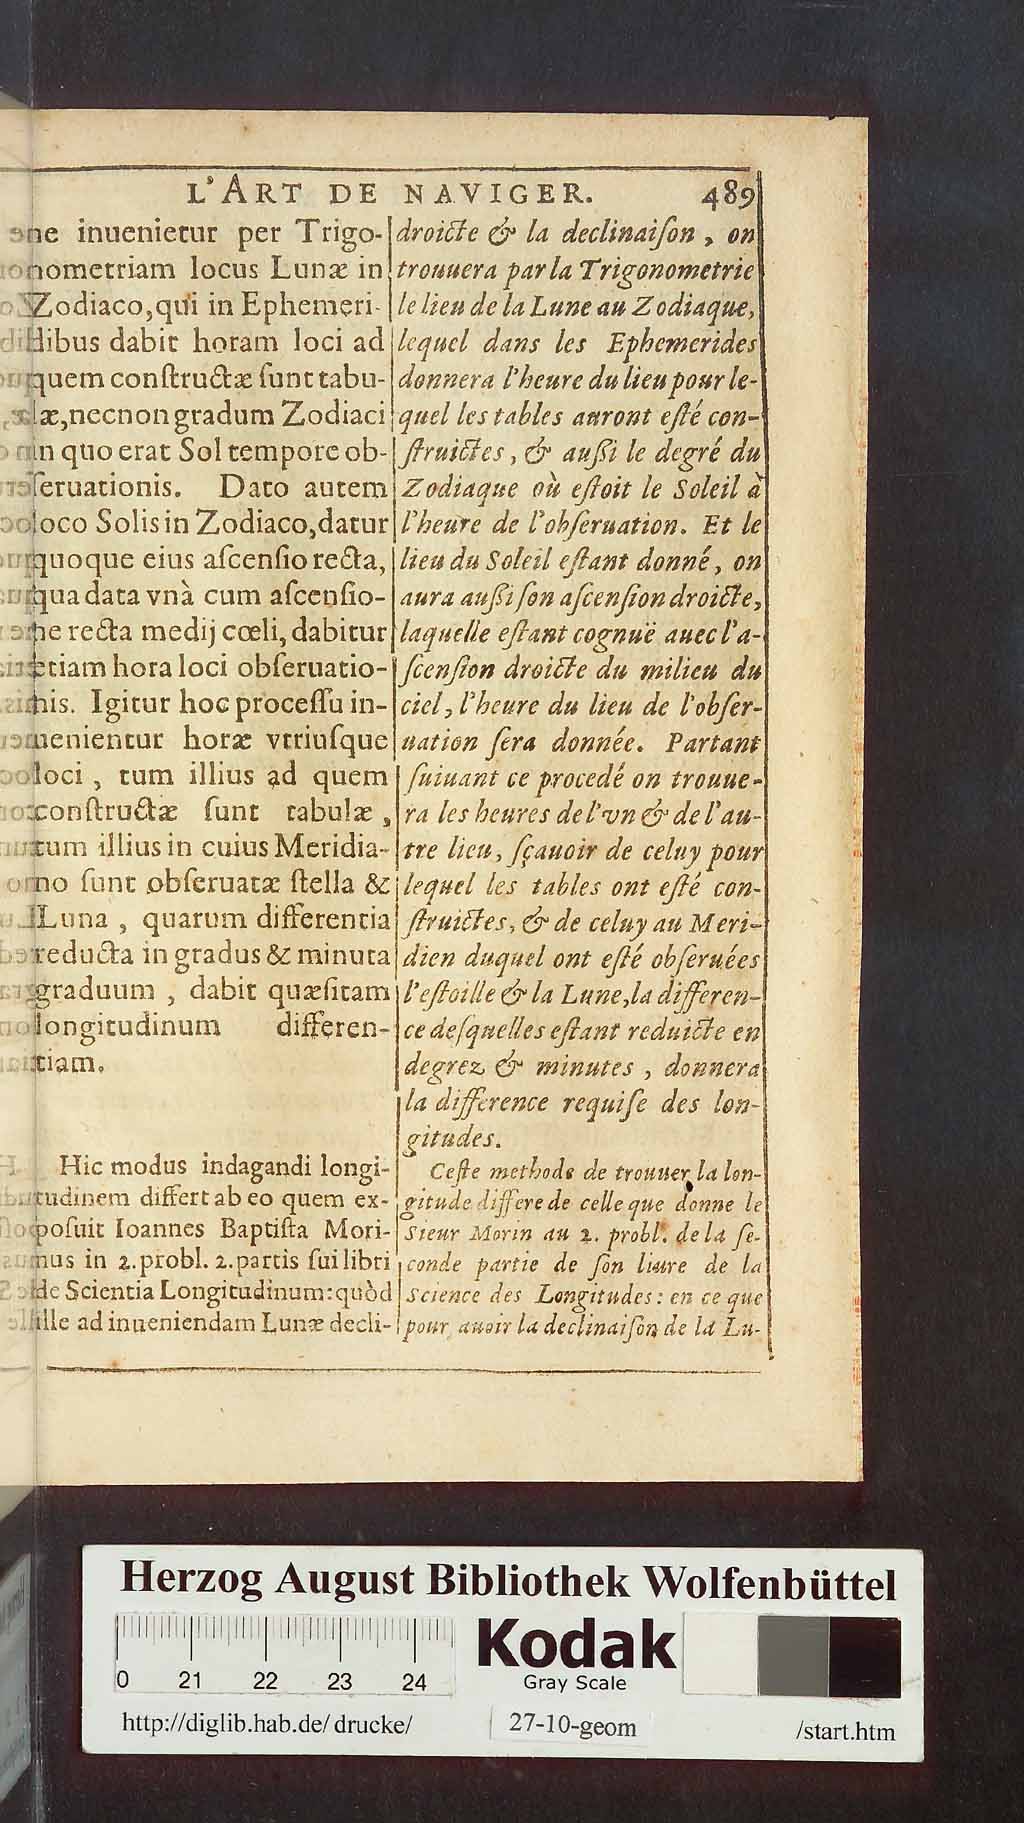 L'ART DE NAVIGER. 489
ne inuenietur per Trigo-
nometriam locus Lunæ in
Zodiaco, qui in Ephemeri-
dibus dabit horam loci ad
quem conſtructæ ſunt tabu-
læ, necnon gradum Zodiaci
in quo erat Sol tempore ob-
ſeruationis. Dato autem
loco Solis in Zodiaco, datur
quoque eius aſcenſio recta,
qua data vnà cum aſcenſio-
ne recta medij cœli, dabitur
etiam hora loci obſeruatio-
nis. Igitur hoc proceſſu in-
uenientur horæ vtriuſque
loci, tum illius ad quem
conſtructæ ſunt tabulæ,
tum illius in cuius Meridia-
no ſunt obſeruatæ ſtella &
Luna, quarum differentia
reducta in gradus & minuta
graduum, dabit quæſitam
longitudinum differen-
tiam.
Hic modus indagandi longi-
tudinem differt ab eo quem ex-
poſuit Ioannes Baptiſta Mori-
nus in 2. probl. 2. partis ſui libri
de Scientia Longitudinum: quòd
ille ad inueniendam Lunæ decli-
droicte & la declinaiſon, on
trouuera par la Trigonometrie
le lieu de la Lune au Zodiaque,
lequel dans les Ephemerides
donnera l'heure du lieu pour le-
quel les tables auront eſté con-
ſtruictes, & auſſi le degré du
Zodiaque où eſtoit le Soleil à
l'heure de l'obſeruation. Et le
lieu du Soleil eſtant donné, on
aura auſſi ſon aſcenſion droicte,
laquelle eſtant cognuë auec l'a-
ſcenſion droicte du milieu du
ciel, l'heure du lieu de l'obſer-
uation ſera donnée. Partant
ſuiuant ce procedé on trouue-
ra les heures de l'vn & de l'au-
tre lieu, ſçauoir de celuy pour
lequel les tables ont eſté con-
ſtruictes, & de celuy au Meri-
dien duquel ont eſté obſeruées
l'eſtoille & la Lune, la differen-
ce deſquelles eſtant reduicte en
degrez & minutes, donnera
la difference requiſe des lon-
gitudes.
Ceſte methode de trouuer la lon-
gitude differe de celle que donne le
Sieur Morin au 2. probl. de la ſe-
conde partie de ſon liure de la
Science des Longitudes: en ce que
pour auoir la declinaiſon de la Lu-
Herzog August Bibliothek Wolfenbüttel
0 21 22 23 24
Kodak
Gray Scale
http://diglib.hab.de/drucke/ 27-10-geom /start.htm